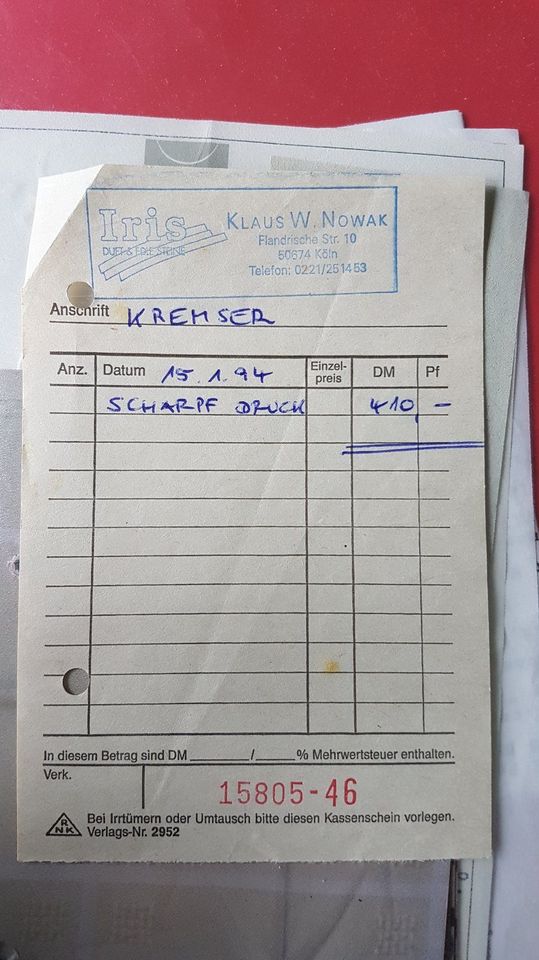 Iris
DUFT & EDLE STEINE
KLAUS W. NOWAK
Flandrische Str. 10
50674 Köln
Telefon: 0221/251453
Anschrift KREMSER
Anz. Datum 15.1.94 Einzel-preis DM Pf
SCHARPF DRUCK 410,-
In diesem Betrag sind DM ______/______% Mehrwertsteuer enthalten.
Verk.
15805-46
RNK Bei Irrtümern oder Umtausch bitte diesen Kassenschein vorlegen.
Verlags-Nr. 2952